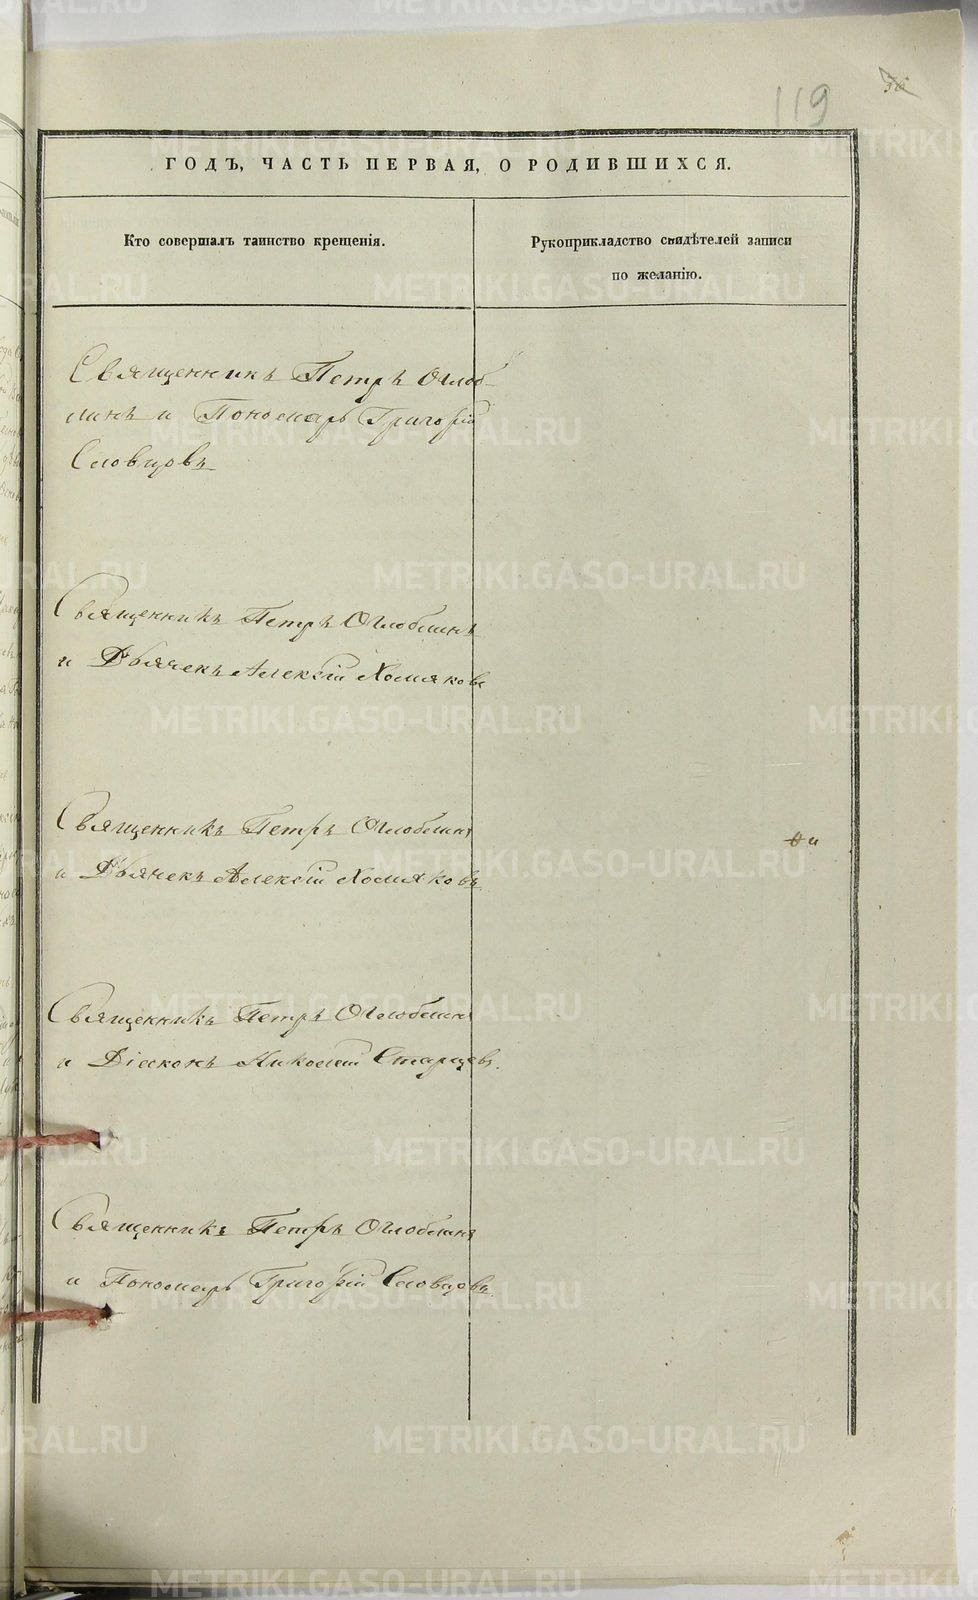 119
ГОДЪ, ЧАСТЬ ПЕРВАЯ, О РОДИВШИХСЯ.
Кто совершалъ таинство крещенія.
Рукоприкладство свидѣтелей записи
по желанію.
Священникъ Петръ Оглоб-
линъ и Пономарь Григорій
Словцовъ
Священникъ Петръ Оглоблинъ
и Дьячекъ Алексій Хомяковъ
Священникъ Петръ Оглоблинъ
и Дьячекъ Алексій Хомяковъ.
Священникъ Петръ Оглоблинъ
и Діаконъ Николай Старцевъ.
Священникъ Петръ Оглоблинъ
и Пономарь Григорій Словцовъ.
METRIKI.GASO-URAL.RU